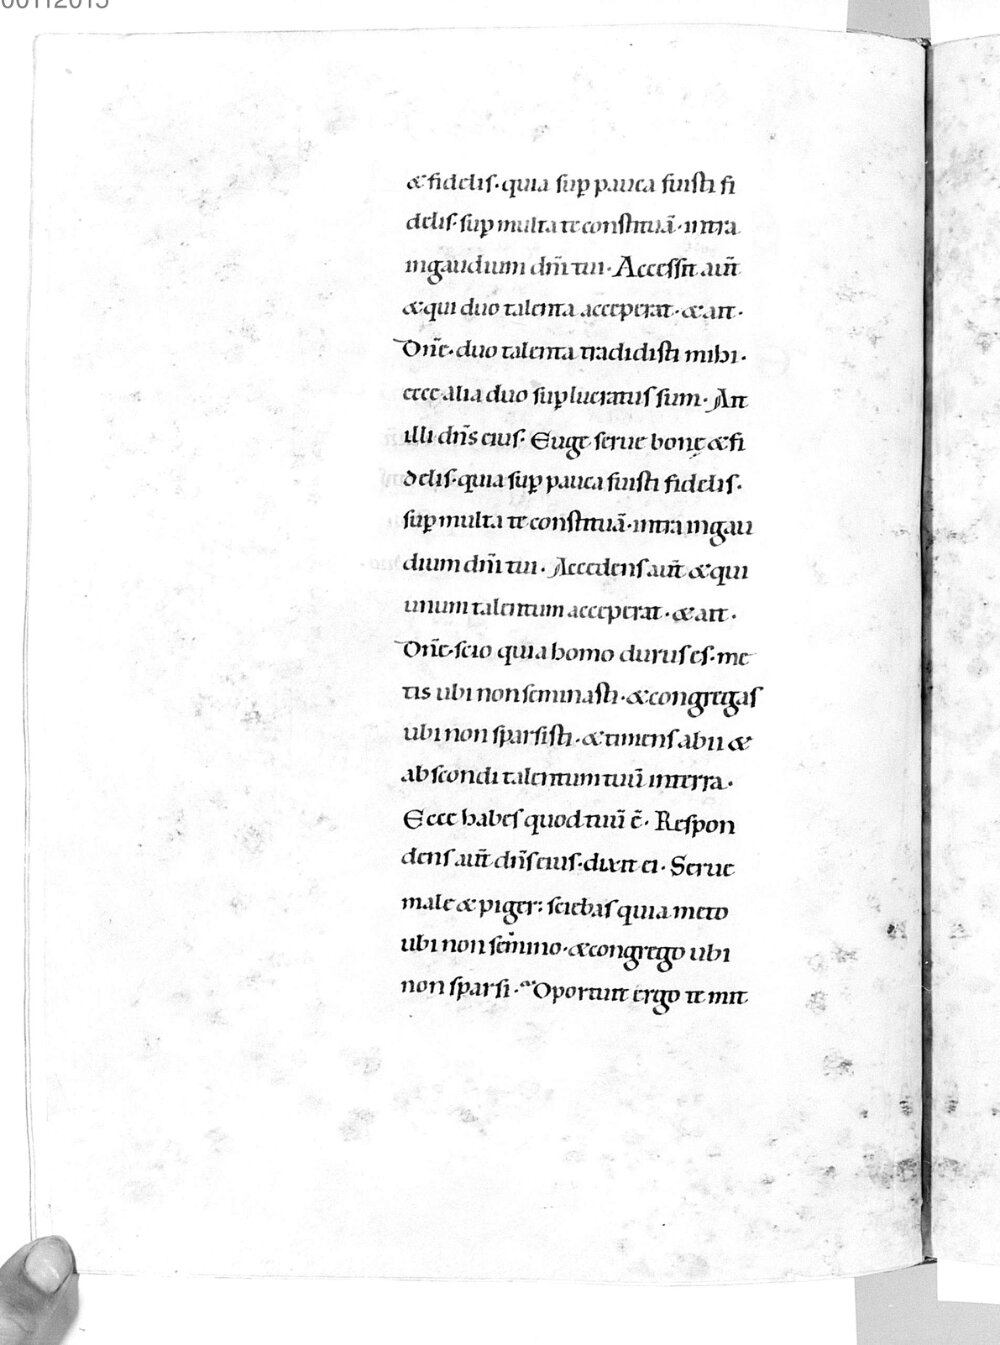 00112015
& fidelis. quia sup̱ pauca fuisti fi
delis. sup̱ multa te constituā. intra
ingaudium dn̄i tui. Accessit aut̄
& qui duo talenta acceperat. & ait.
Dn̄e. duo talenta tradidisti mihi.
ecce alia duo sup̱lucratus sum. Ait
illi dn̄s eius. Euge serue bone & fi
delis. quia sup̱ pauca fuisti fidelis.
sup̱ multa te constituā. intra ingau
dium dn̄i tui. Accedens aut̄ & qui
unum talentum acceperat. & ait.
Dn̄e. scio quia homo durus es. me
tis ubi non seminasti. & congregas
ubi non sparsisti. & timens abii &
abscondi talentum tuū interra.
Ecce habes quod tuū ē. Respon
dens aut̄ dn̄s eius. dixit ei. Serue
male & piger: sciebas quia meto
ubi non semino. & congrego ubi
non sparsi. Oportuit ergo te mit